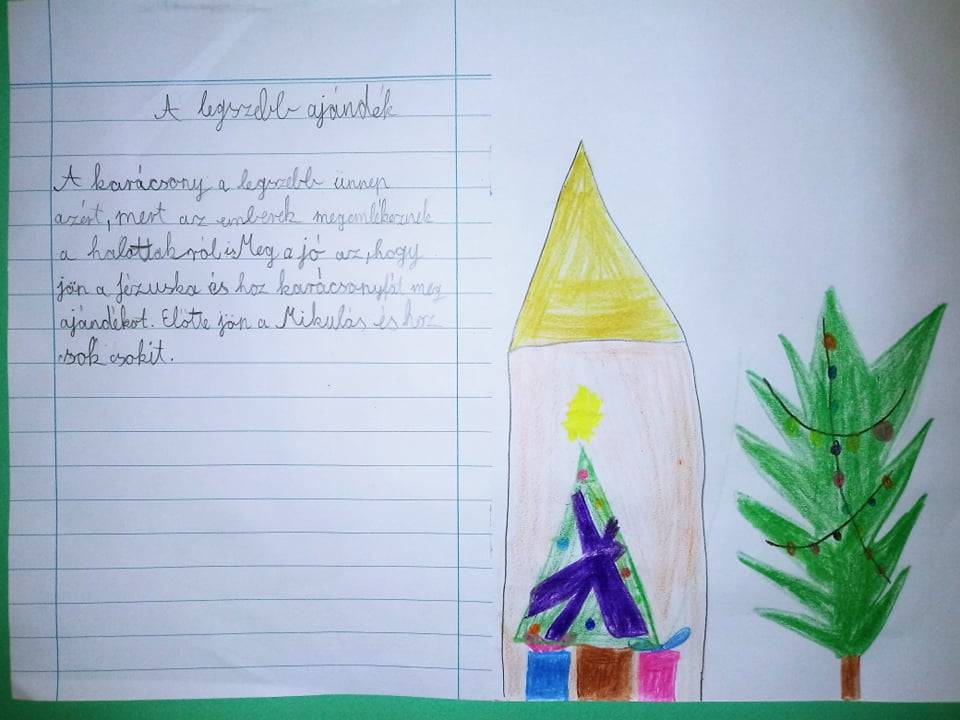 A legszebb ajándék
A karácsony a legszebb ünnep
azért, mert az emberek megemlékeznek
a halottakról is Meg a jó az, hogy
jön a Jézuska és hoz karácsonyfát meg
ajándékot. Előtte jön a Mikulás és hoz
sok csokit.